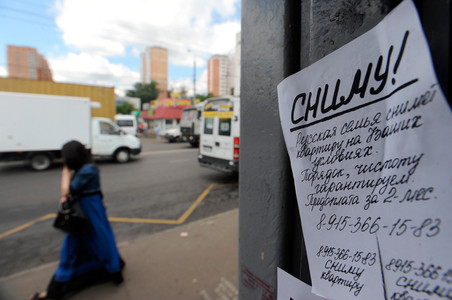 СНИМУ!
Русская семья снимет
квартиру на Ваших
условиях.
Порядок, чистоту
гарантируем.
Предоплата за 2 мес.
8-915-366-15-83
8-915-366-15-83
сниму
квартиру
8-915-366-15-83
Сниму